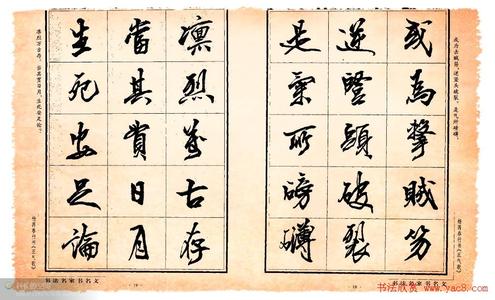 或為擊賊笏
逆豎頭破裂
是氣所磅礴
凛烈萬古存
當其貫日月
生死安足論
或为击贼笏,逆竖头破裂。是气所磅礴,
凛烈万古存。当其贯日月,生死安足论?
书法名家书名文
书法名家书名文
书法欣赏
www.yac8.com